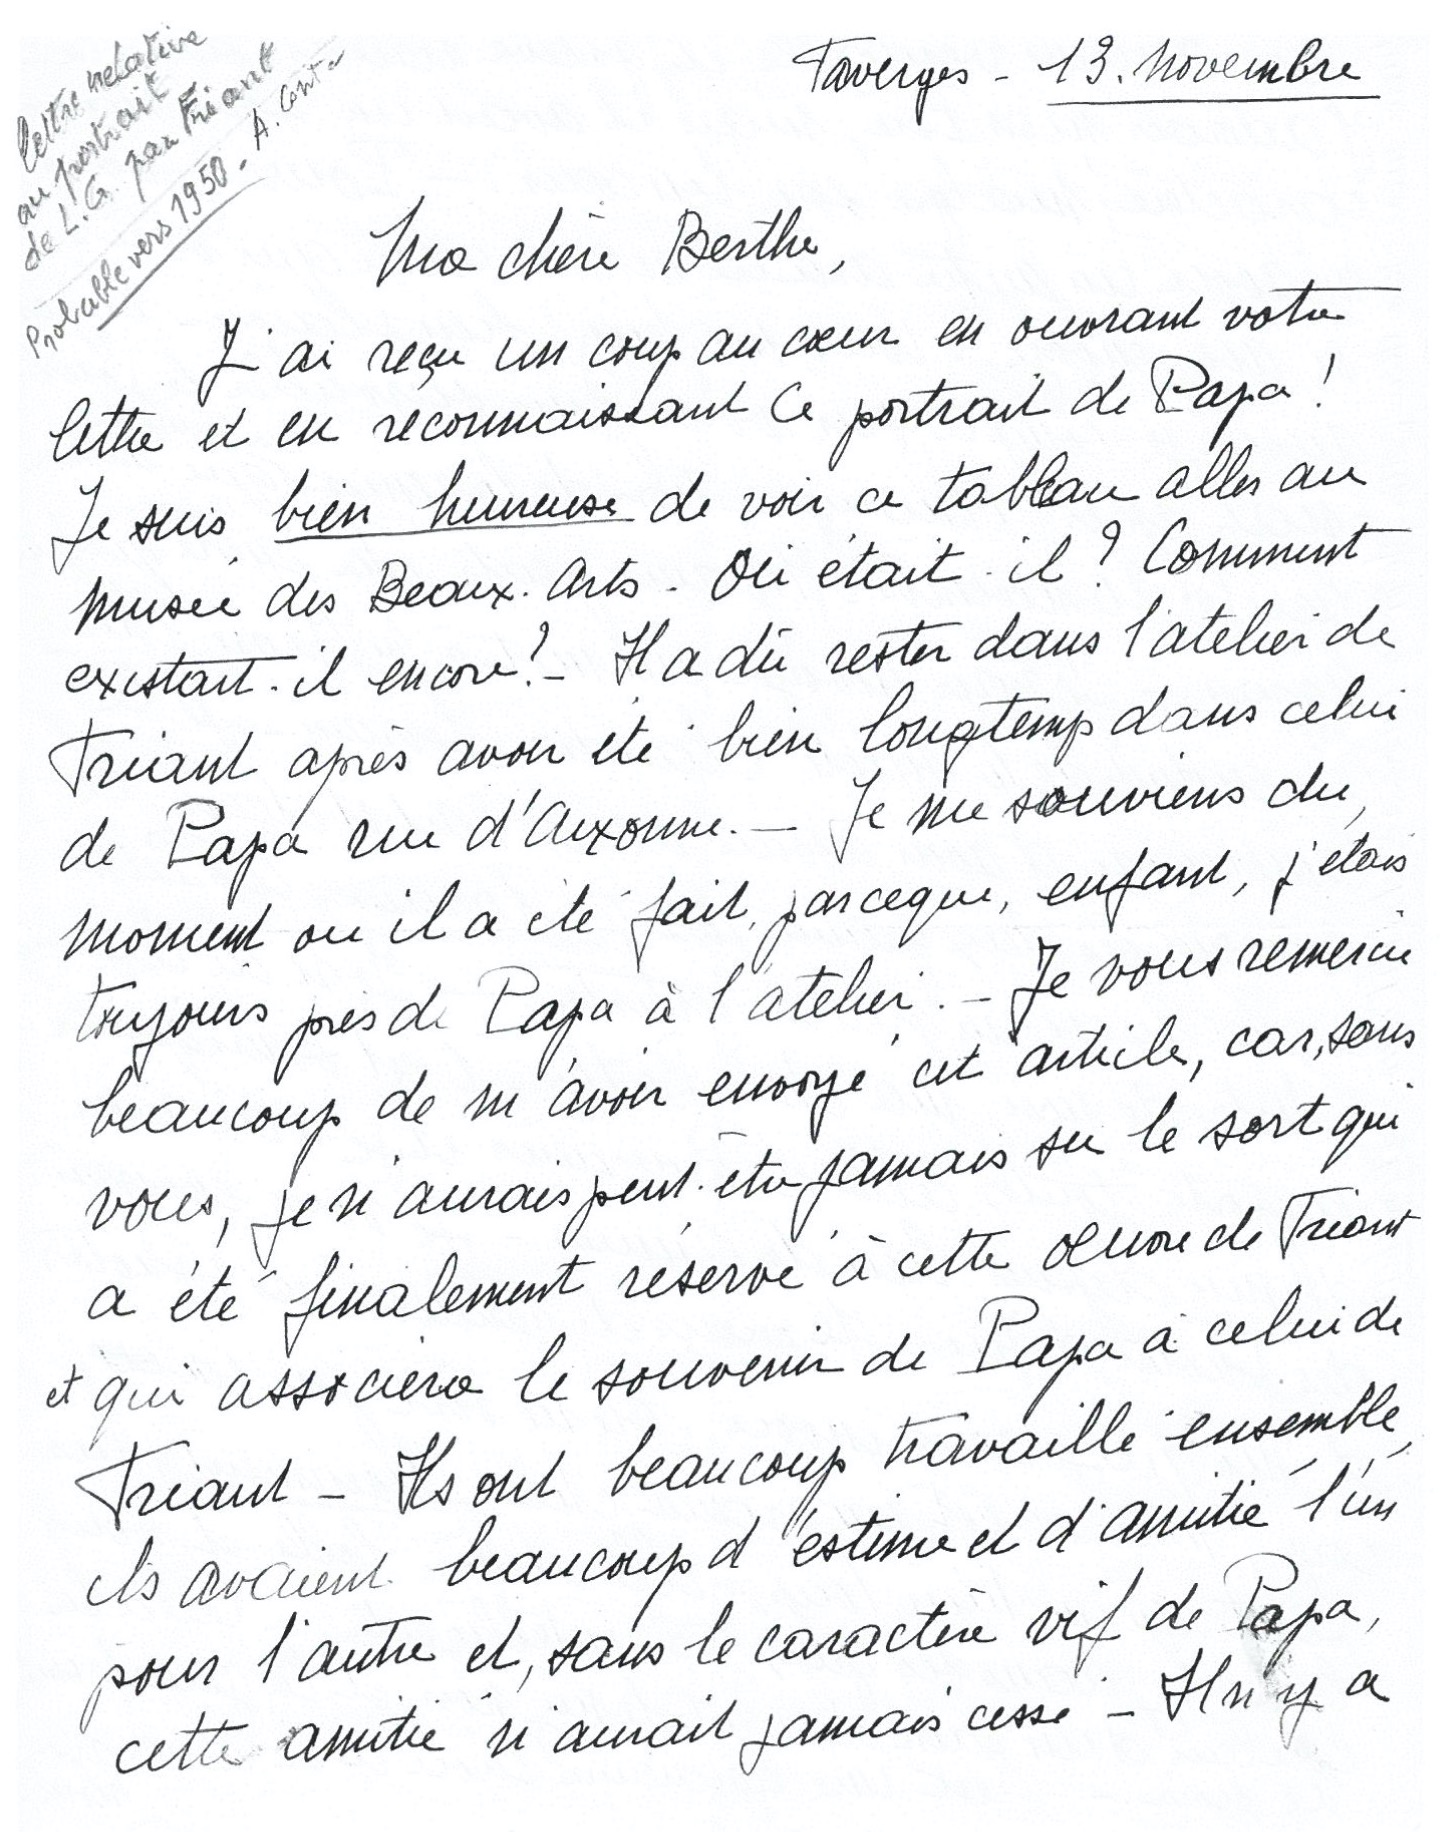 lettre relative
au portrait
de L.G. par Friant
Probable vers 1950 - A.
Faverges - 13. Novembre
Ma chère Berthe,
J'ai reçu un coup au cœur en ouvrant votre
lettre et en reconnaissant ce portrait de Papa !
Je suis bien heureuse de voir ce tableau aller au
Musée des Beaux-Arts - Où était-il ? Comment
existait-il encore ? - Il a dû rester dans l'atelier de
Friant après avoir été bien longtemps dans celui
de Papa rue d'Auxonne. - Je me souviens du
moment ou il a été fait, parceque, enfant, j'étais
toujours près de Papa à l'atelier. - Je vous remercie
beaucoup de m'avoir envoyé cet article, car, sans
vous, je n'aurais peut-être jamais su le sort qui
a été finalement réservé à cette œuvre de Friant
et qui associera le souvenir de Papa à celui de
Friant - Ils ont beaucoup travaillé ensemble,
ils avaient beaucoup d'estime et d'amitié l'un
pour l'autre et, sans le caractère vif de Papa,
cette amitié n'aurait jamais cessé - Il n'y a